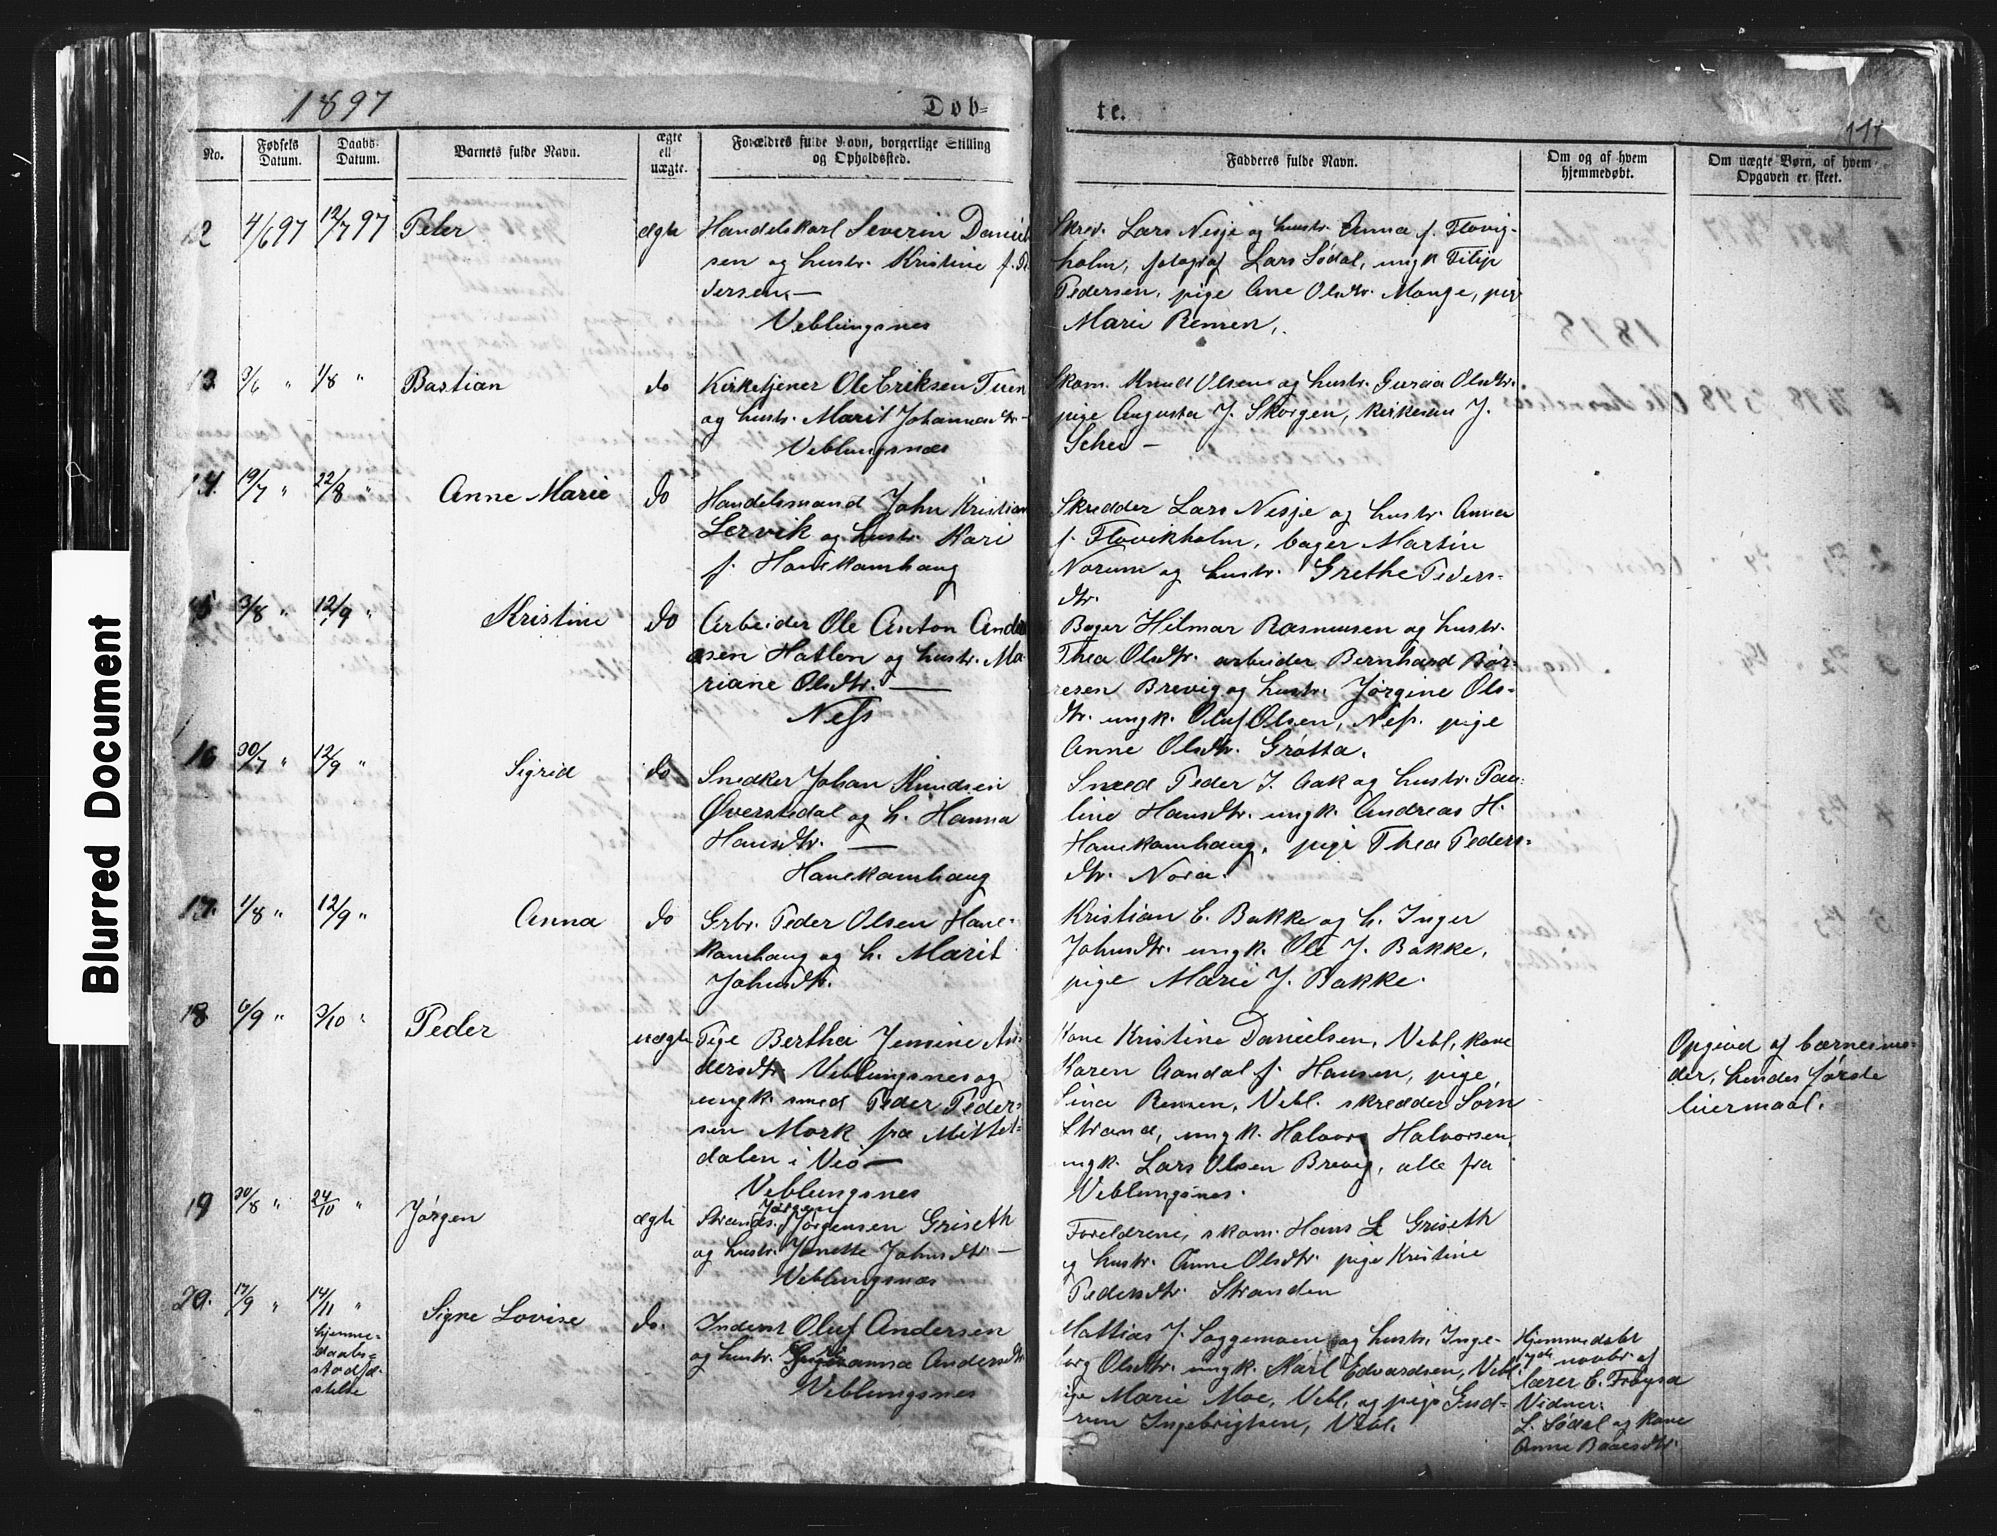 Blurred Document
1897
Døb-
te.
111
No.
Fødsels
Datum.
Daabs-
Datum.
Barnets fulde Navn.
ægte
ell
uægte.
Forældres fulde Navn, borgerlige Stilling
og Opholdssted.
Fadderes fulde Navn.
Om og af hvem
hjemmedøbt.
Om uægte Børn, af hvem
Opgaven er skeet.
12 4/6 97 12/7 97 Peter ægte
Handelskarl Severin Daniel-
sen og hustr. Kristine f. Pe
dersen. —
Veblungsnes
Skred. Lars Nesje og hustr. Anna f. Flovig-
holm, fotograf Lars Sødal, ungk Filip
Pedersen, pige Ane Olsdtr. Monge, pige
Marie Bensen.
13. 3/6 " 1/8 " Bastian do
Kirketjener Ole Eriksen Tuen
og hustr. Marit Johannesdtr. —
Veblungsnæs
Skom. Knud Olsen og hustr. Guroa Olsdtr.
pige Augusta J. Skorgen, kirkesan J.
Schei —
14. 19/7 " 22/8 " Anne Marie do
Handelsmand John Kristian
Lervik og hustr. Kari
f. Hanekamhaug
Skredder Lars Nesje og hustr. Anna
f. Flovikholm, bager Martin
Norum og hustr. Grethe Peders-
dtr.
15 3/8 " 12/9 " Kristine do
Arbeider Ole Anton Andr
asen Hatlen og hustr. Ma-
riane Olsdtr. —
Ness
Bager Hilmar Rasmusen og hustr.
Thea Olsdtr. arbeider Bernhard Bør-
resen Brevig og hustr. Jørgine Ols-
dtr. ungk. Oluf Olsen, Ness. pige
Anne Olsdtr. Grøtta.
16 30/7 " 12/9 " Sigrid do
Snedker Johan Knudsen
Øverstedal og h. Hanna
Hansdtr. —
Hanekamhaug
Smed Peder J. Aak og hustr. Pau-
line Hansdtr. ungk. Andreas H.
Hanekamhaug, pige Thea Peders-
dtr. Nora.
17. 1/8 " 12/9 " Anna do
Grbr. Peder Olsen Hane-
kamhaug og h. Marit
Johnsdtr.
Kristian E. Bakke og h. Inger
Johnsdtr. ungk. Ole J. Bakke,
pige Marie J. Bakke.
18 6/9 " 3/10 " Peder uægte
Pige Bertha Jensine An-
dersdtr. Veblungsnes og
ungk. smed Peder Peder-
sen Mork fra Mittet-
dalen i Veø —
Veblungsnes
Kone Kristine Danielsen, Vebl, kone
Karen Aandal f. Hansen, pige
Lina Bensen, Vebl. skredder Sørn
Strand, ungk. Halvor Halvorsen,
ungk. Lars Olsen Brevig, alle fra
Veblungsnes.
Opgived af barnesmo-
der, hendes første
leiermaal.
19 30/8 " 24/10 " Jørgen ægte
Jørgen
Strands. Jørgensen Griseth
og hustr. Jonette Johnsdtr. —
Veblungsnæs
Foreldrene, skom. Hans L Griseth
og hustr. Anne Olsdtr. pige Kristine
Pedersdtr. Stranden
20. 17/9 " 14/11 " Signe Lovise do.
hjemme-
daabs-
stadfæ-
stelse
Inderst Oluf Andersen
og hustr. Andersdtr.
Veblungsnes
Mattias J. Soggemoen og hustr. Inge-
borg Olsdtr. ungk. Karl Edvardsen, Vebl.
pige Marie Moe, Vebl. og pige Gud-
run Ingebrigtsen, Vebl.
Hjemmedøbt
novbr. af
lærer E. Frøysa
Vidner:
L. Sødal og kone
Anne Baardsdtr.